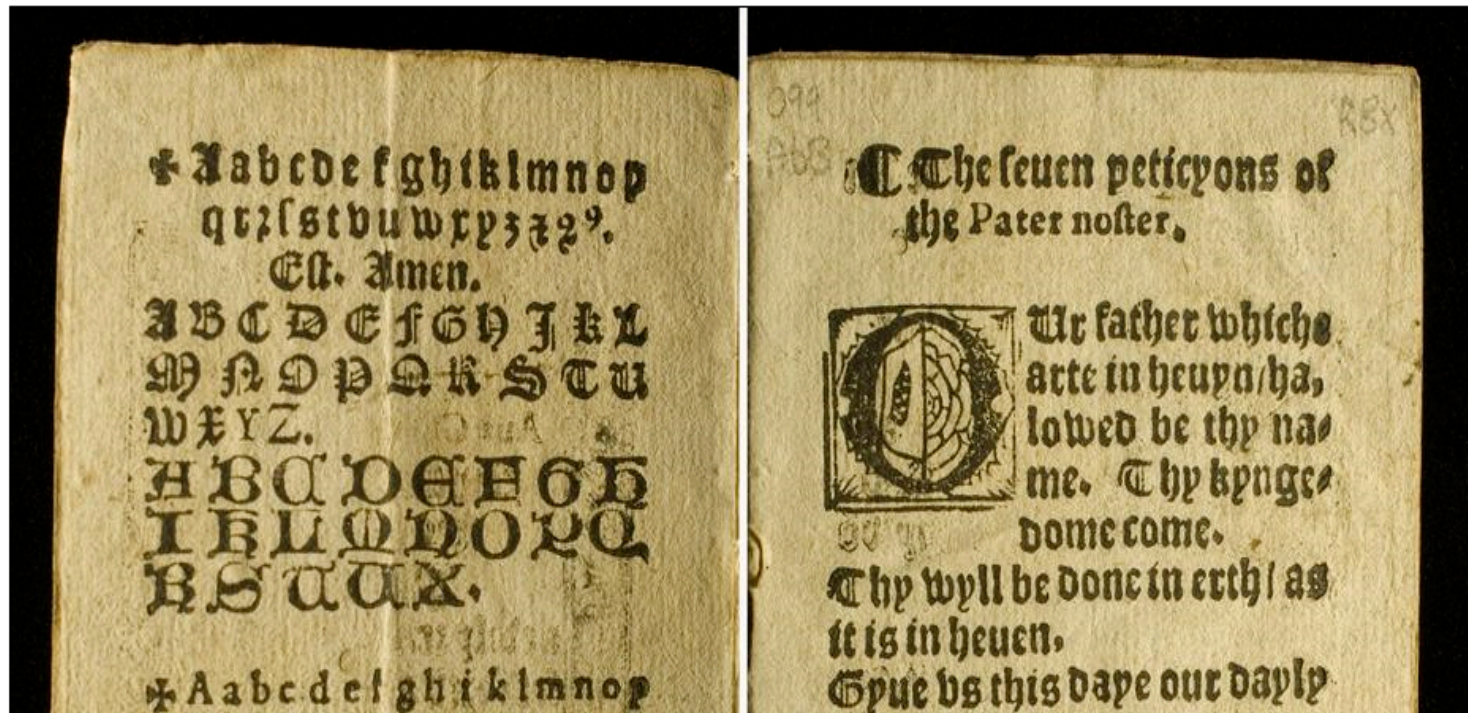 ✠ A a b c d e f g h i k l m n o p
q r ꝛ ſ s t v u w x y z ⁊ ꝯ ꝰ.
Eſt. Amen.
A B C D E F G H J K L
M N O P Q R S T U
W X Y Z.
A B C D E F G H
I K L M N O P Q
R S T U X.
✠ A a b c d e f g h i k l m n o p
099
AbB
RBX
¶ The ſeuen peticyons of
the Pater noſter.
OUr father whiche
arte in heuyn / ha,
lowed be thy na⸗
me. Thy kynge⸗
dome come.
Thy wyll be done in erth / as
it is in heuen.
Gyue vs this daye our dayly